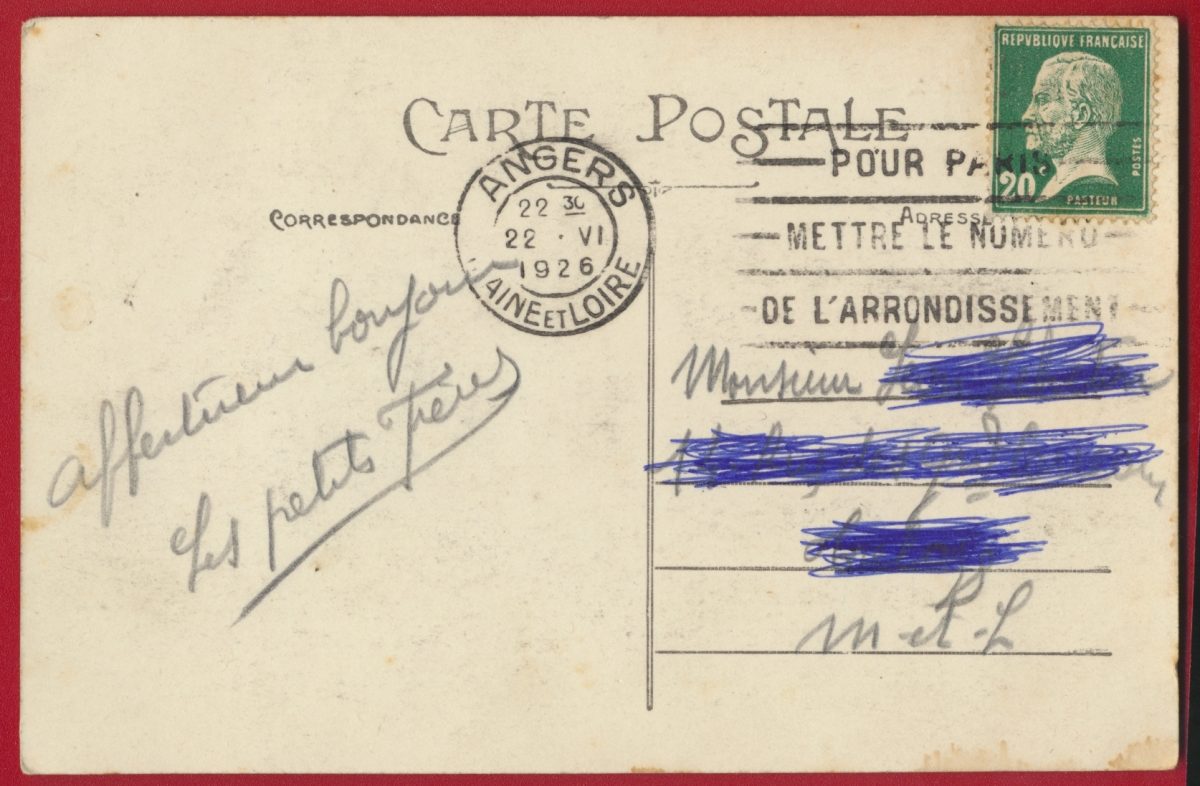 CARTE POSTALE
REPVBLIQVE FRANÇAISE
POSTES
20
PASTEUR
CORRESPONDANCE
ADRESSE
ANGERS
22 30
22 · VI
1926
AINE ET LOIRE
POUR PARIS
METTRE LE NUMERO
DE L'ARRONDISSEMENT
affectueux bonjour
Les petits frères
Monsieur
M-et-L